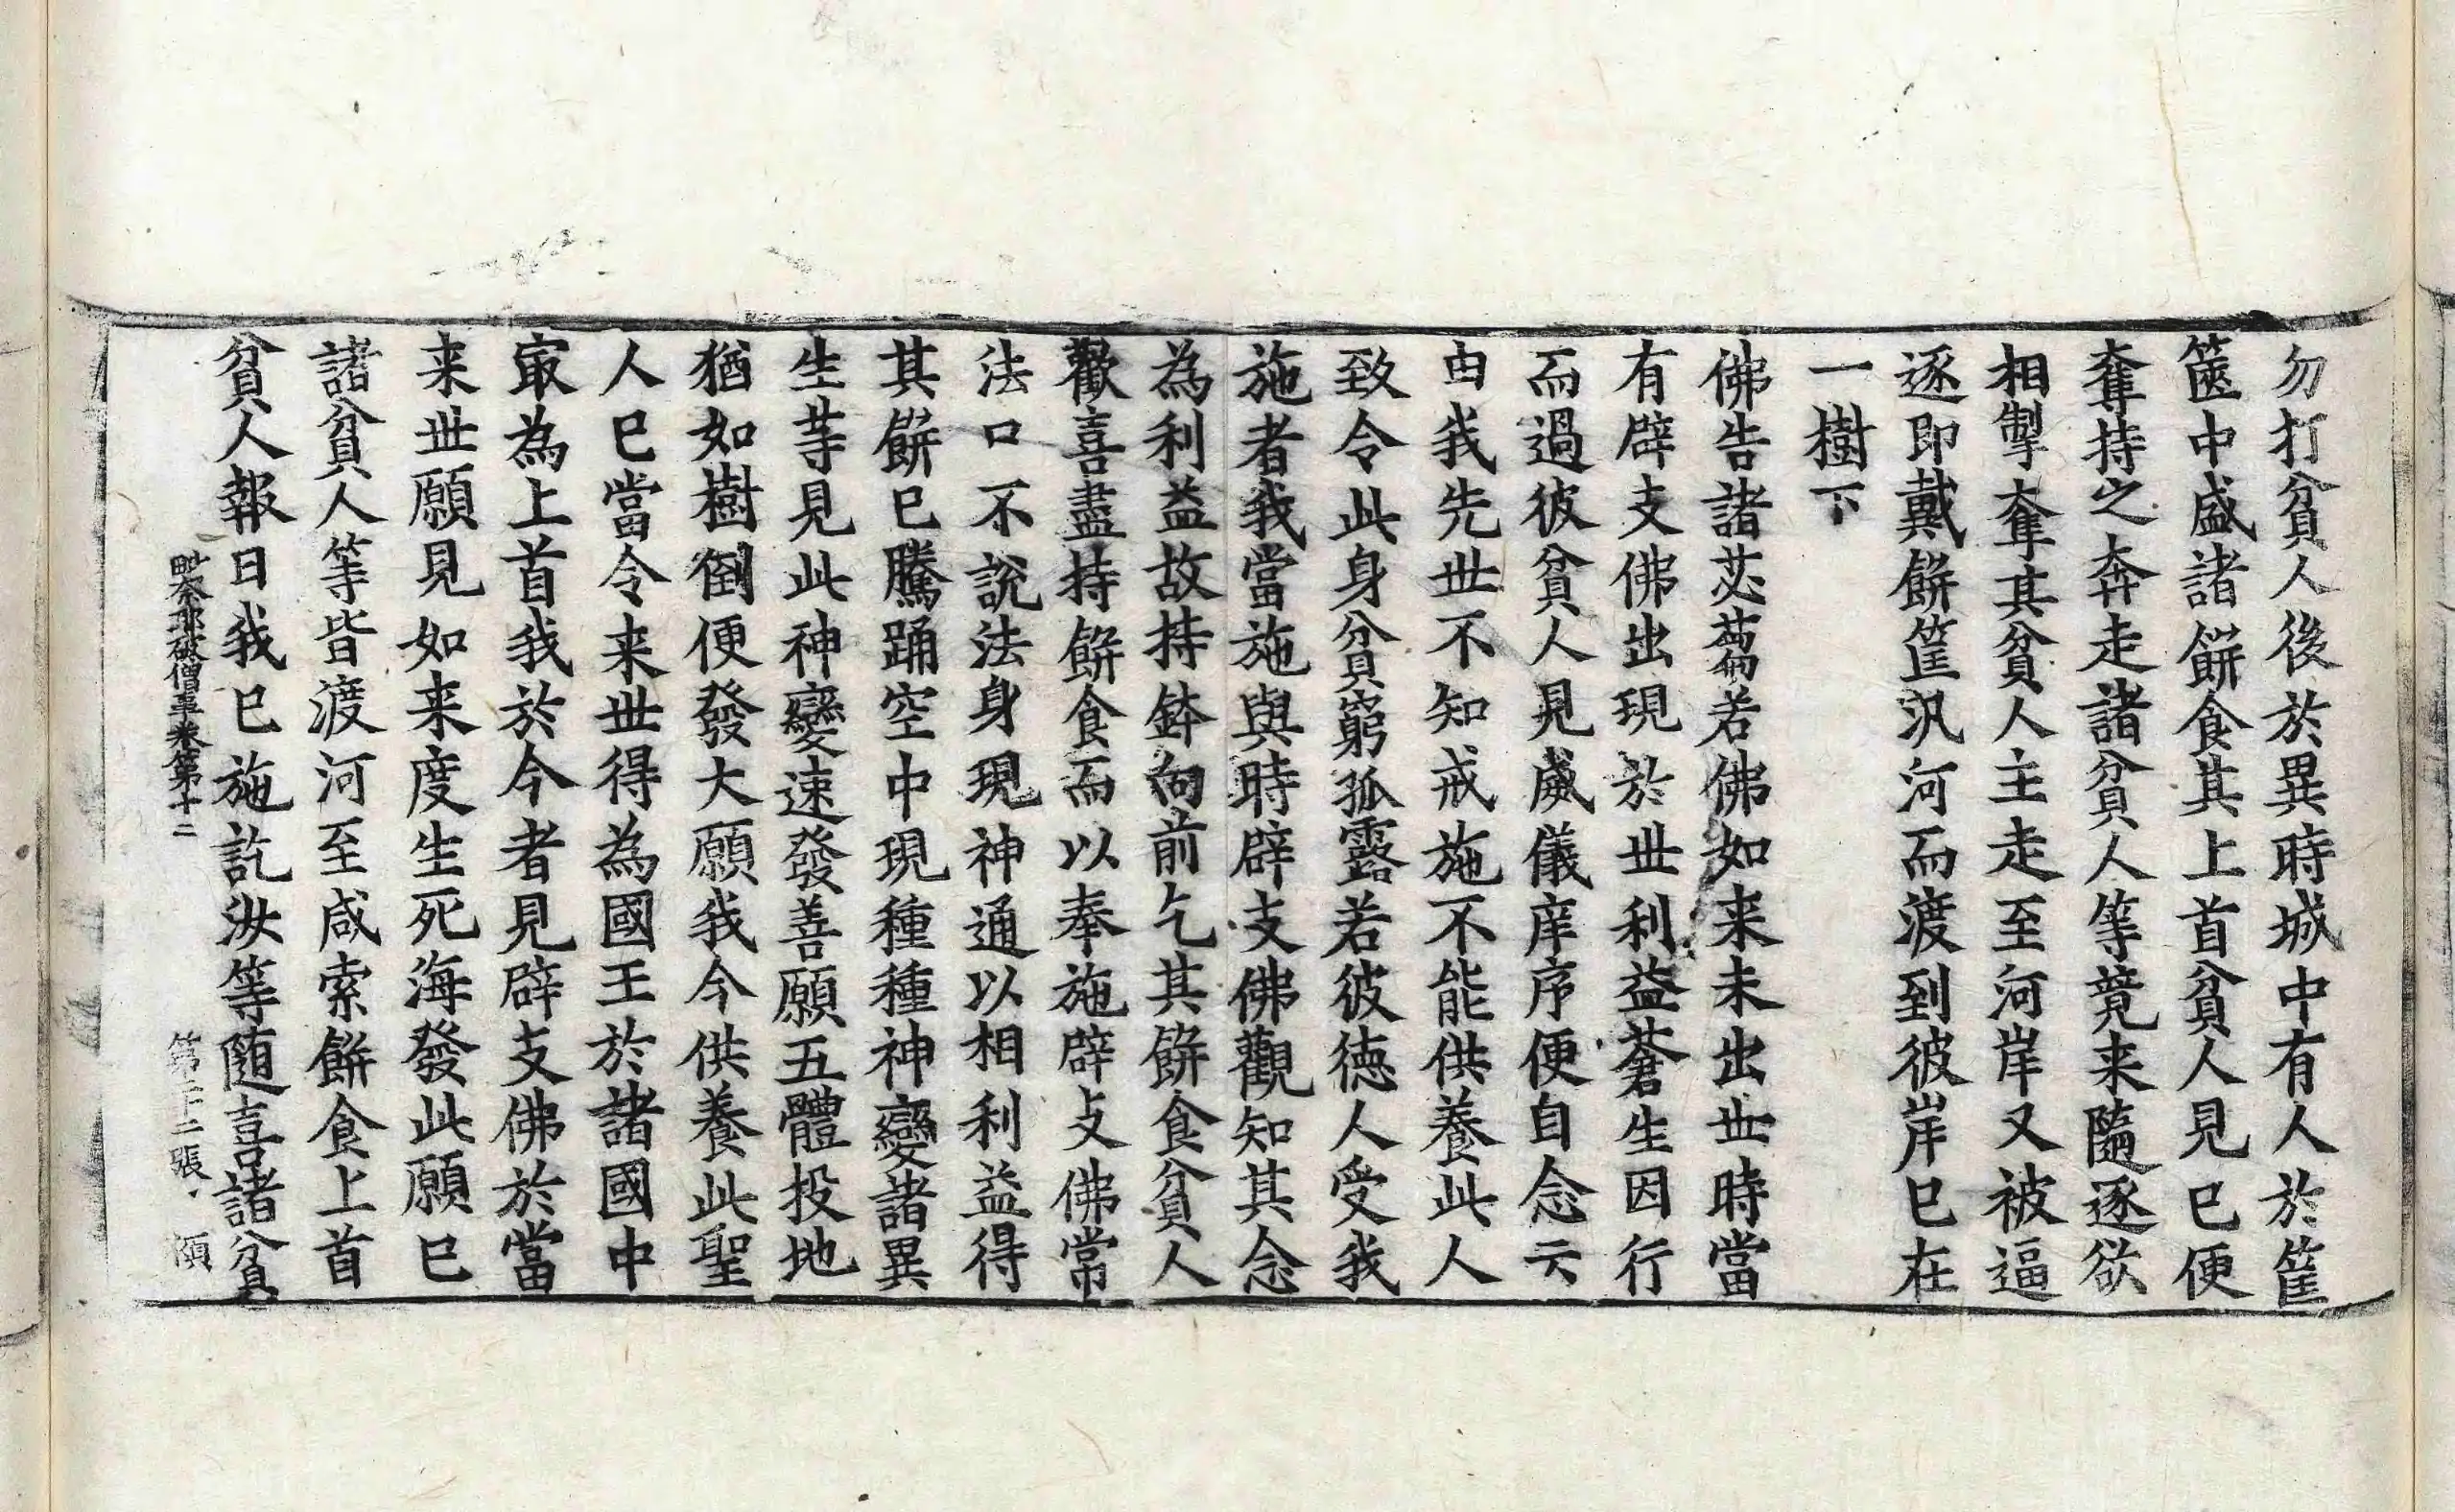 勿打貧人後於異時城中有人於筐
篋中盛諸餅食其上首貧人見已便
奪持之奔走諸貧人等競来隨逐欲
相掣奪其貧人主走至河岸又被逼
逐即戴餅筐汎河而渡到彼岸已在
一樹下
佛告諸苾蒭若佛如来未出世時當
有辟支佛出現於世利益蒼生因行
而過彼貧人見威儀庠序便自念云
由我先世不知戒施不能供養此人
致令此身貧窮孤露若彼德人受我
施者我當施與時辟支佛觀知其念
為利益故持鉢向前乞其餅食貧人
歡喜盡持餅食而以奉施辟支佛常
法口不說法身現神通以相利益得
其餅已騰踊空中現種種神變諸異
生等見此神變速發善願五體投地
猶如樹倒便發大願我今供養此聖
人已當令来世得為國王於諸國中
冣為上首我於今者見辟支佛於當
来世願見如来度生死海發此願已
諸貧人等皆渡河至咸索餅食上首
貧人報曰我已施訖汝等随喜諸貧
毗奈耶破僧事卷第十二 第二張